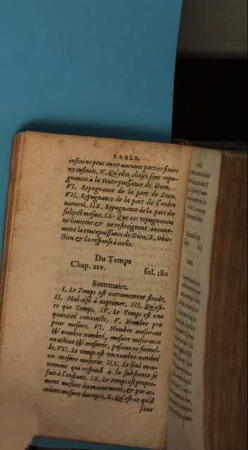 TABLE.
infini ne peut avoir aucunes parties finies
ny infinies, V. Quelles choses sont repu-
gnantes à la toute-puissance de Dieu,
VI, Repugnance de la part de Dieu,
VII, Repugnance de la part de l'ordre
naturel, IIX, Repugnance de la part du
subject mesme, IX. Que ces repugnances
ne limitent & ne restreignent aucune-
ment la toutepuissance de Dieu, X, Obie-
ction & la response à icelle.
Du Temps
Chap. XIV. fol. 180
Sommaire.
I. Le Temps est extremement fluide,
II, Mal-aisé à exprimer. III, Qu'est-
ce que Temps, IV, Le Temps est une
quantité continuë, V, Nombre pris
pour mesure, VI, Nombre mesurant
en actuë & mesure,
VII, Le temps est un nombre nombré
ou mesure mesuree. IIX, Le seul mouve-
ment qui respond à la substance se
fait à l'instant, IX, Le temps est propre-
ment mesure du mouvement, & par ac-
cident mesure du repos, X, Qu'est-ce qu'est
sous